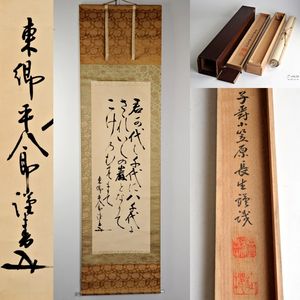 東郷平八郎謹書
君が代は千代に八千代に
さゝれいしの巌となりて
こけのむすまて
東郷平八郎謹書
子爵小笠原長生謹識